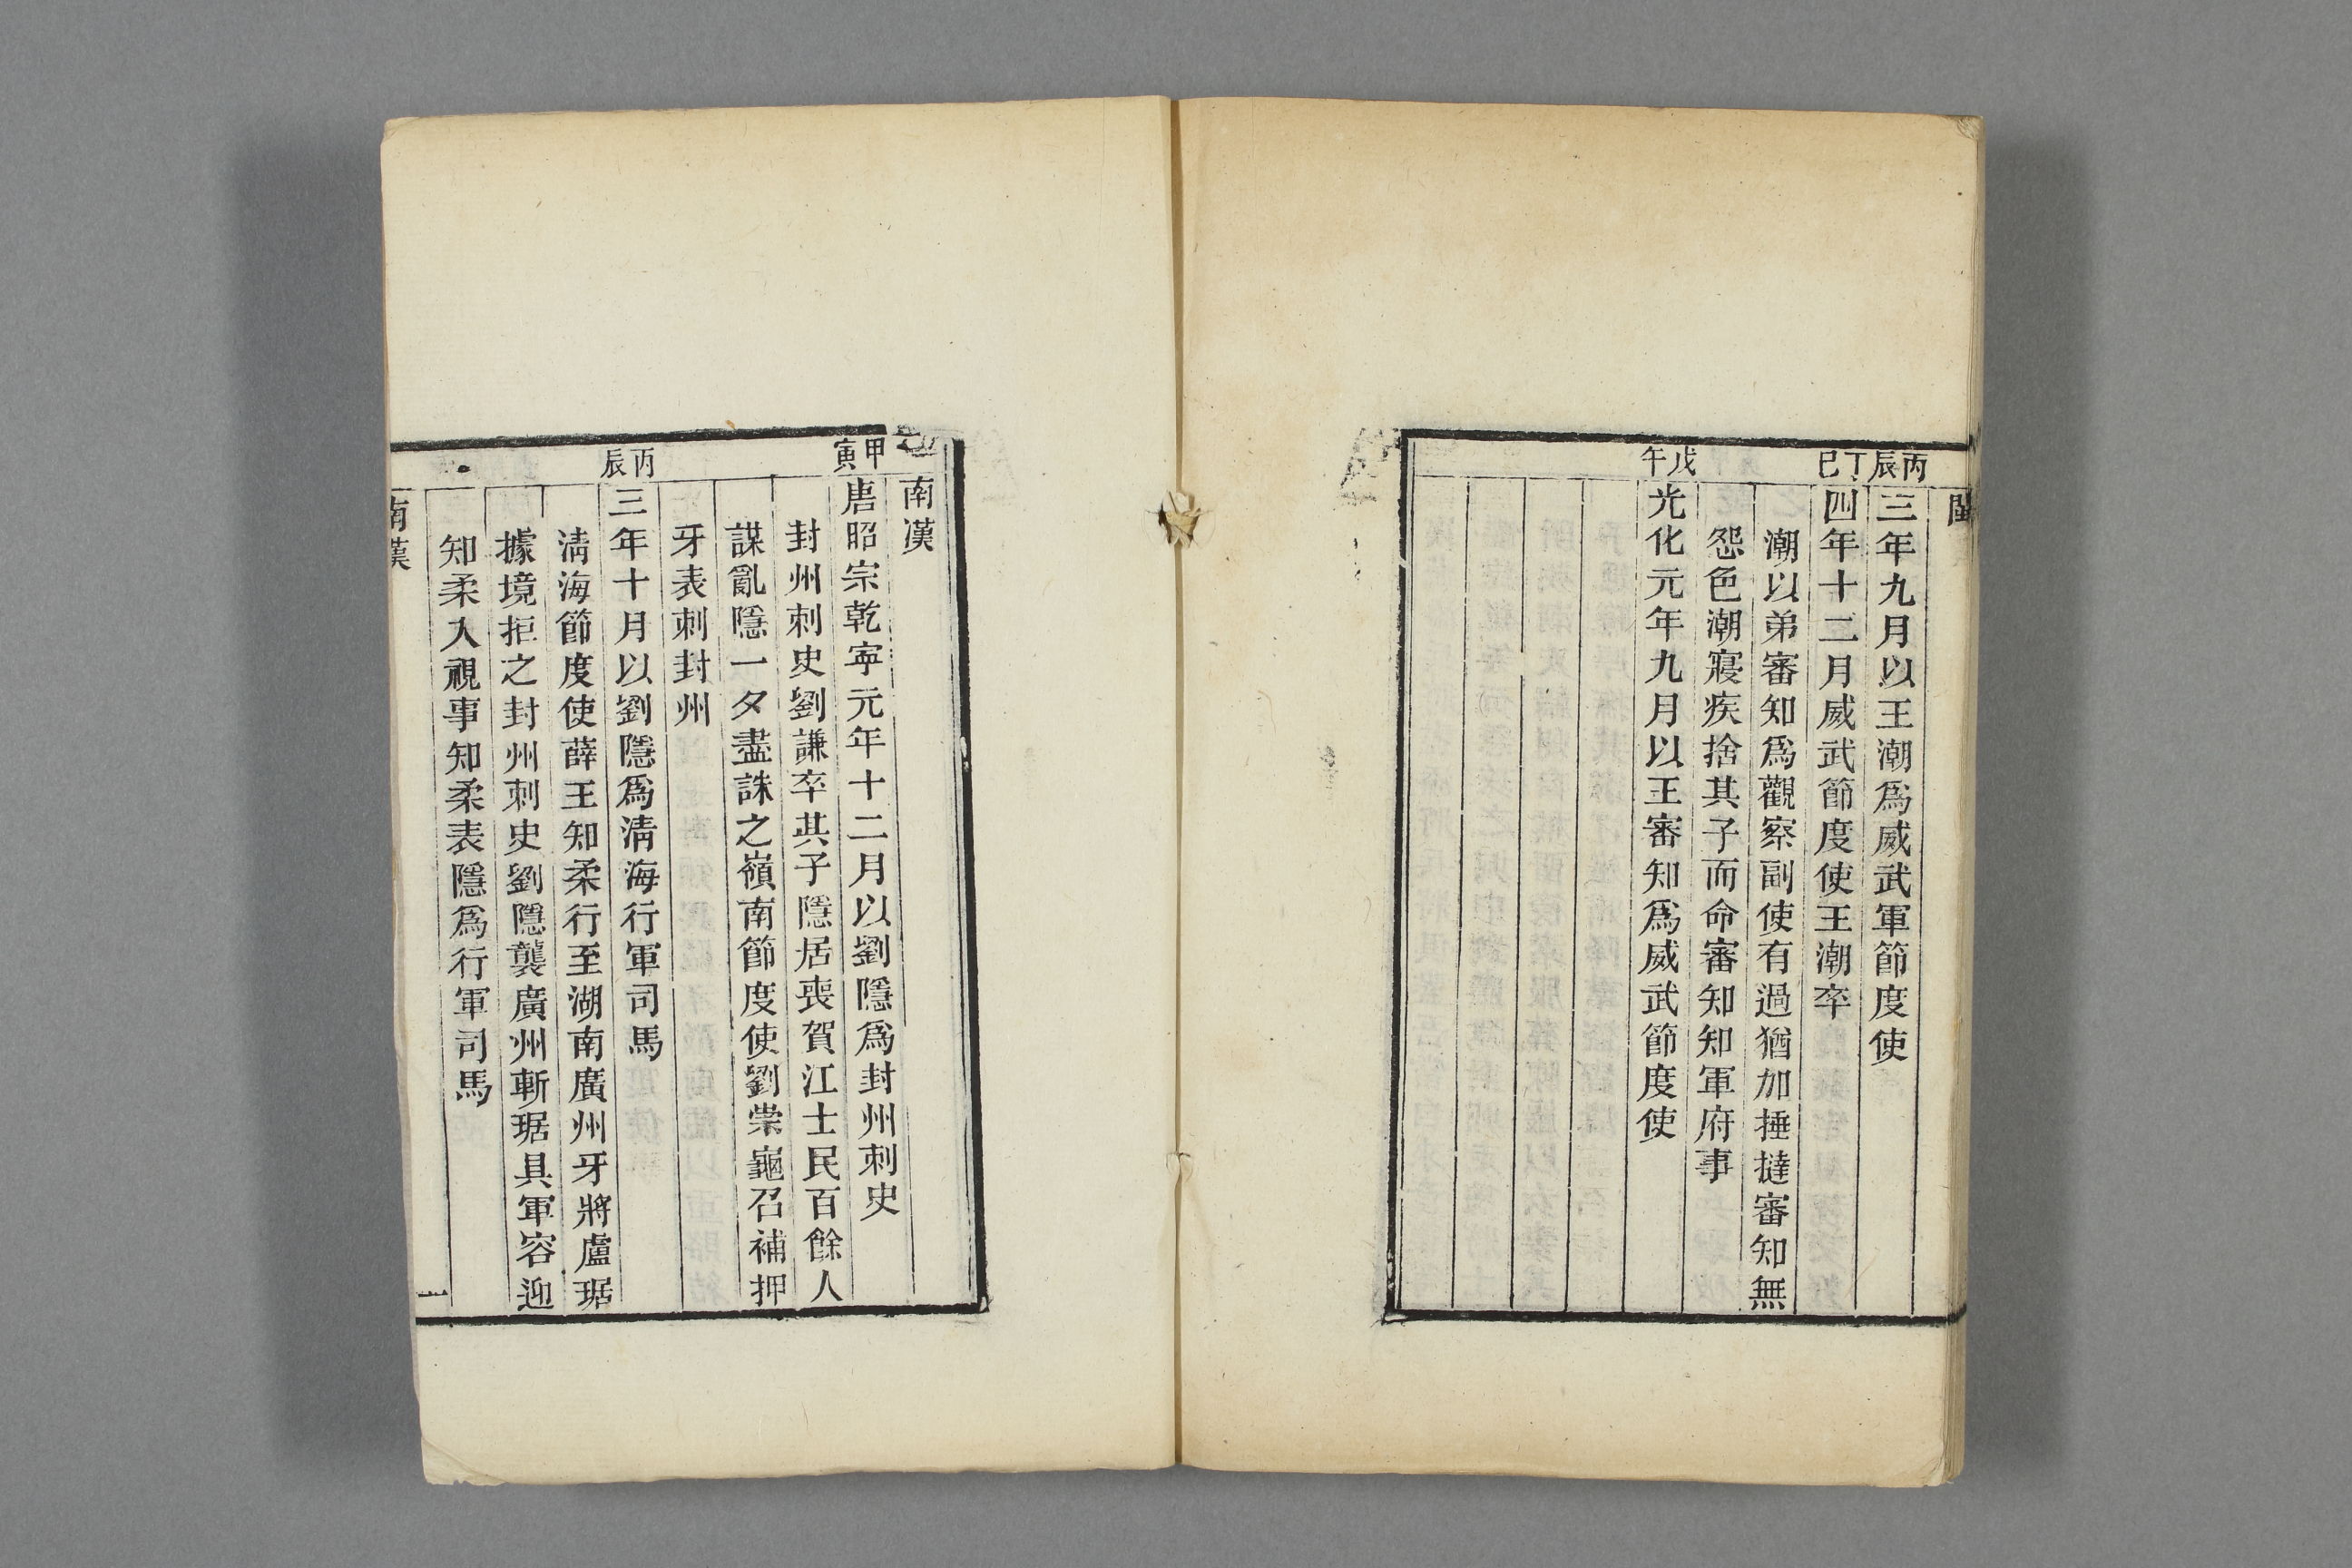 閩
丙辰
三年九月以王潮爲威武軍節度使
丁巳
四年十二月威武節度使王潮卒
潮以弟審知爲觀察副使有過猶加捶撻審知無
怨色潮寢疾捨其子而命審知知軍府事
戊午
光化元年九月以王審知爲威武節度使
南漢
甲寅
唐昭宗乾寧元年十二月以劉隱爲封州刺史
封州刺史劉謙卒其子隱居喪賀江士民百餘人
謀亂隱一夕盡誅之嶺南節度使劉崇龜召補押
牙表刺封州
丙辰
三年十月以劉隱爲清海行軍司馬
清海節度使薛王知柔行至湖南廣州牙將盧琚
據境拒之封州刺史劉隱襲廣州斬琚具軍容迎
知柔入視事知柔表隱爲行軍司馬
南漢
一